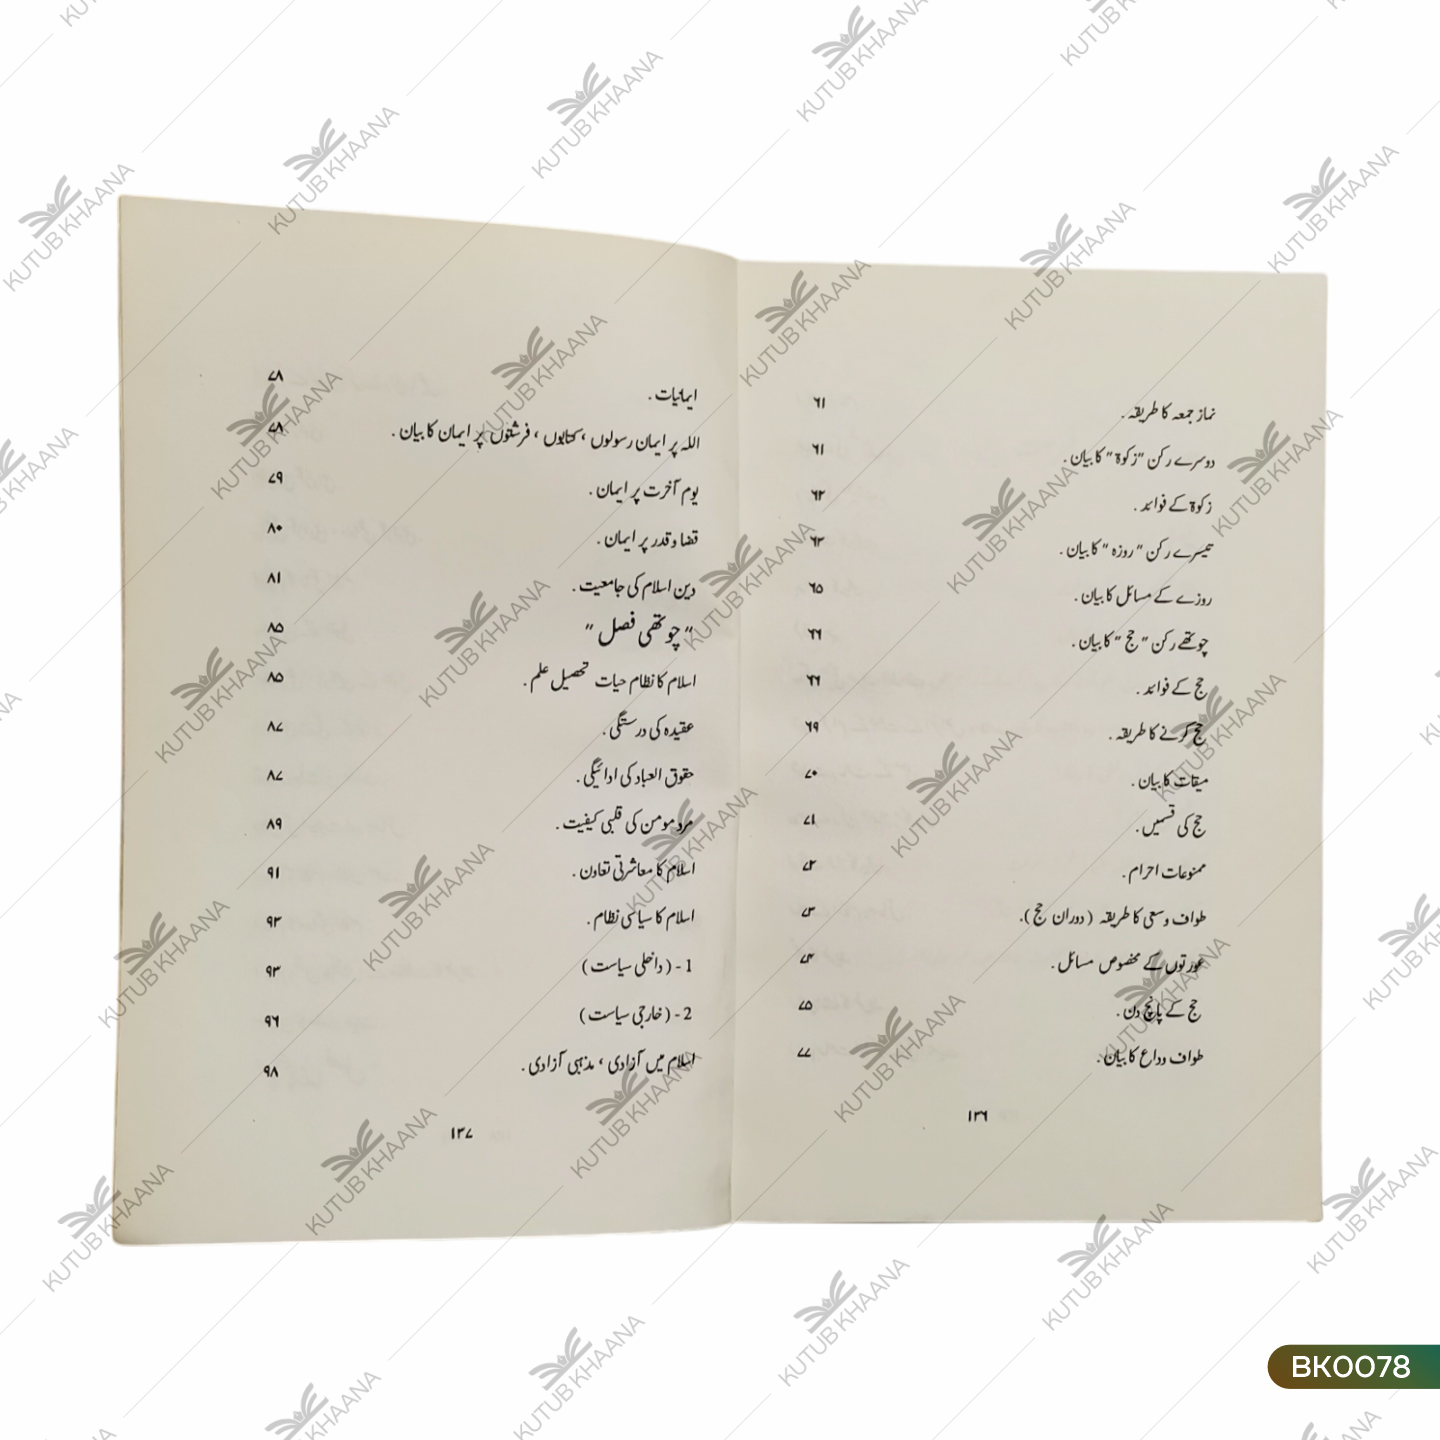 نماز جمعہ کا طریقہ . ۶۱
دوسرے رکن "زکوة" کا بیان . ۶۱
زکوة کے فوائد . ۶۲
تیسرے رکن "روزہ" کا بیان . ۶۳
روزے کے مسائل کا بیان . ۶۵
چوتھے رکن "حج" کا بیان . ۶۶
حج کے فوائد . ۶۶
حج کرنے کا طریقہ . ۶۹
میقات کا بیان . ۷۰
حج کی قسمیں . ۷۱
ممنوعات احرام . ۷۲
طواف وسعی کا طریقہ ( دوران حج ). ۷۳
عورتوں کے مخصوص مسائل . ۷۴
حج کے پانچ دن . ۷۵
طواف وداع کا بیان . ۷۷
۱۳۶
ایمانیات . ۷۸
اللہ پر ایمان رسولوں ، کتابوں ، فرشتوں پر ایمان کا بیان . ۷۸
یوم آخرت پر ایمان . ۷۹
قضا و قدر پر ایمان . ۸۰
دین اسلام کی جامعیت . ۸۱
" چوتھی فصل " ۸۵
اسلام کا نظام حیات تحصیل علم . ۸۵
عقیدہ کی درستگی . ۸۷
حقوق العباد کی ادائیگی . ۸۷
مرد مومن کی قلبی کیفیت . ۸۹
اسلام کا معاشرتی تعاون . ۹۱
اسلام کا سیاسی نظام . ۹۳
1 - ( داخلی سیاست ) ۹۳
2 - ( خارجی سیاست ) ۹۶
اسلام میں آزادی ، مذہبی آزادی . ۹۸
۱۳۷
KUTUB KHAANA
BK0078